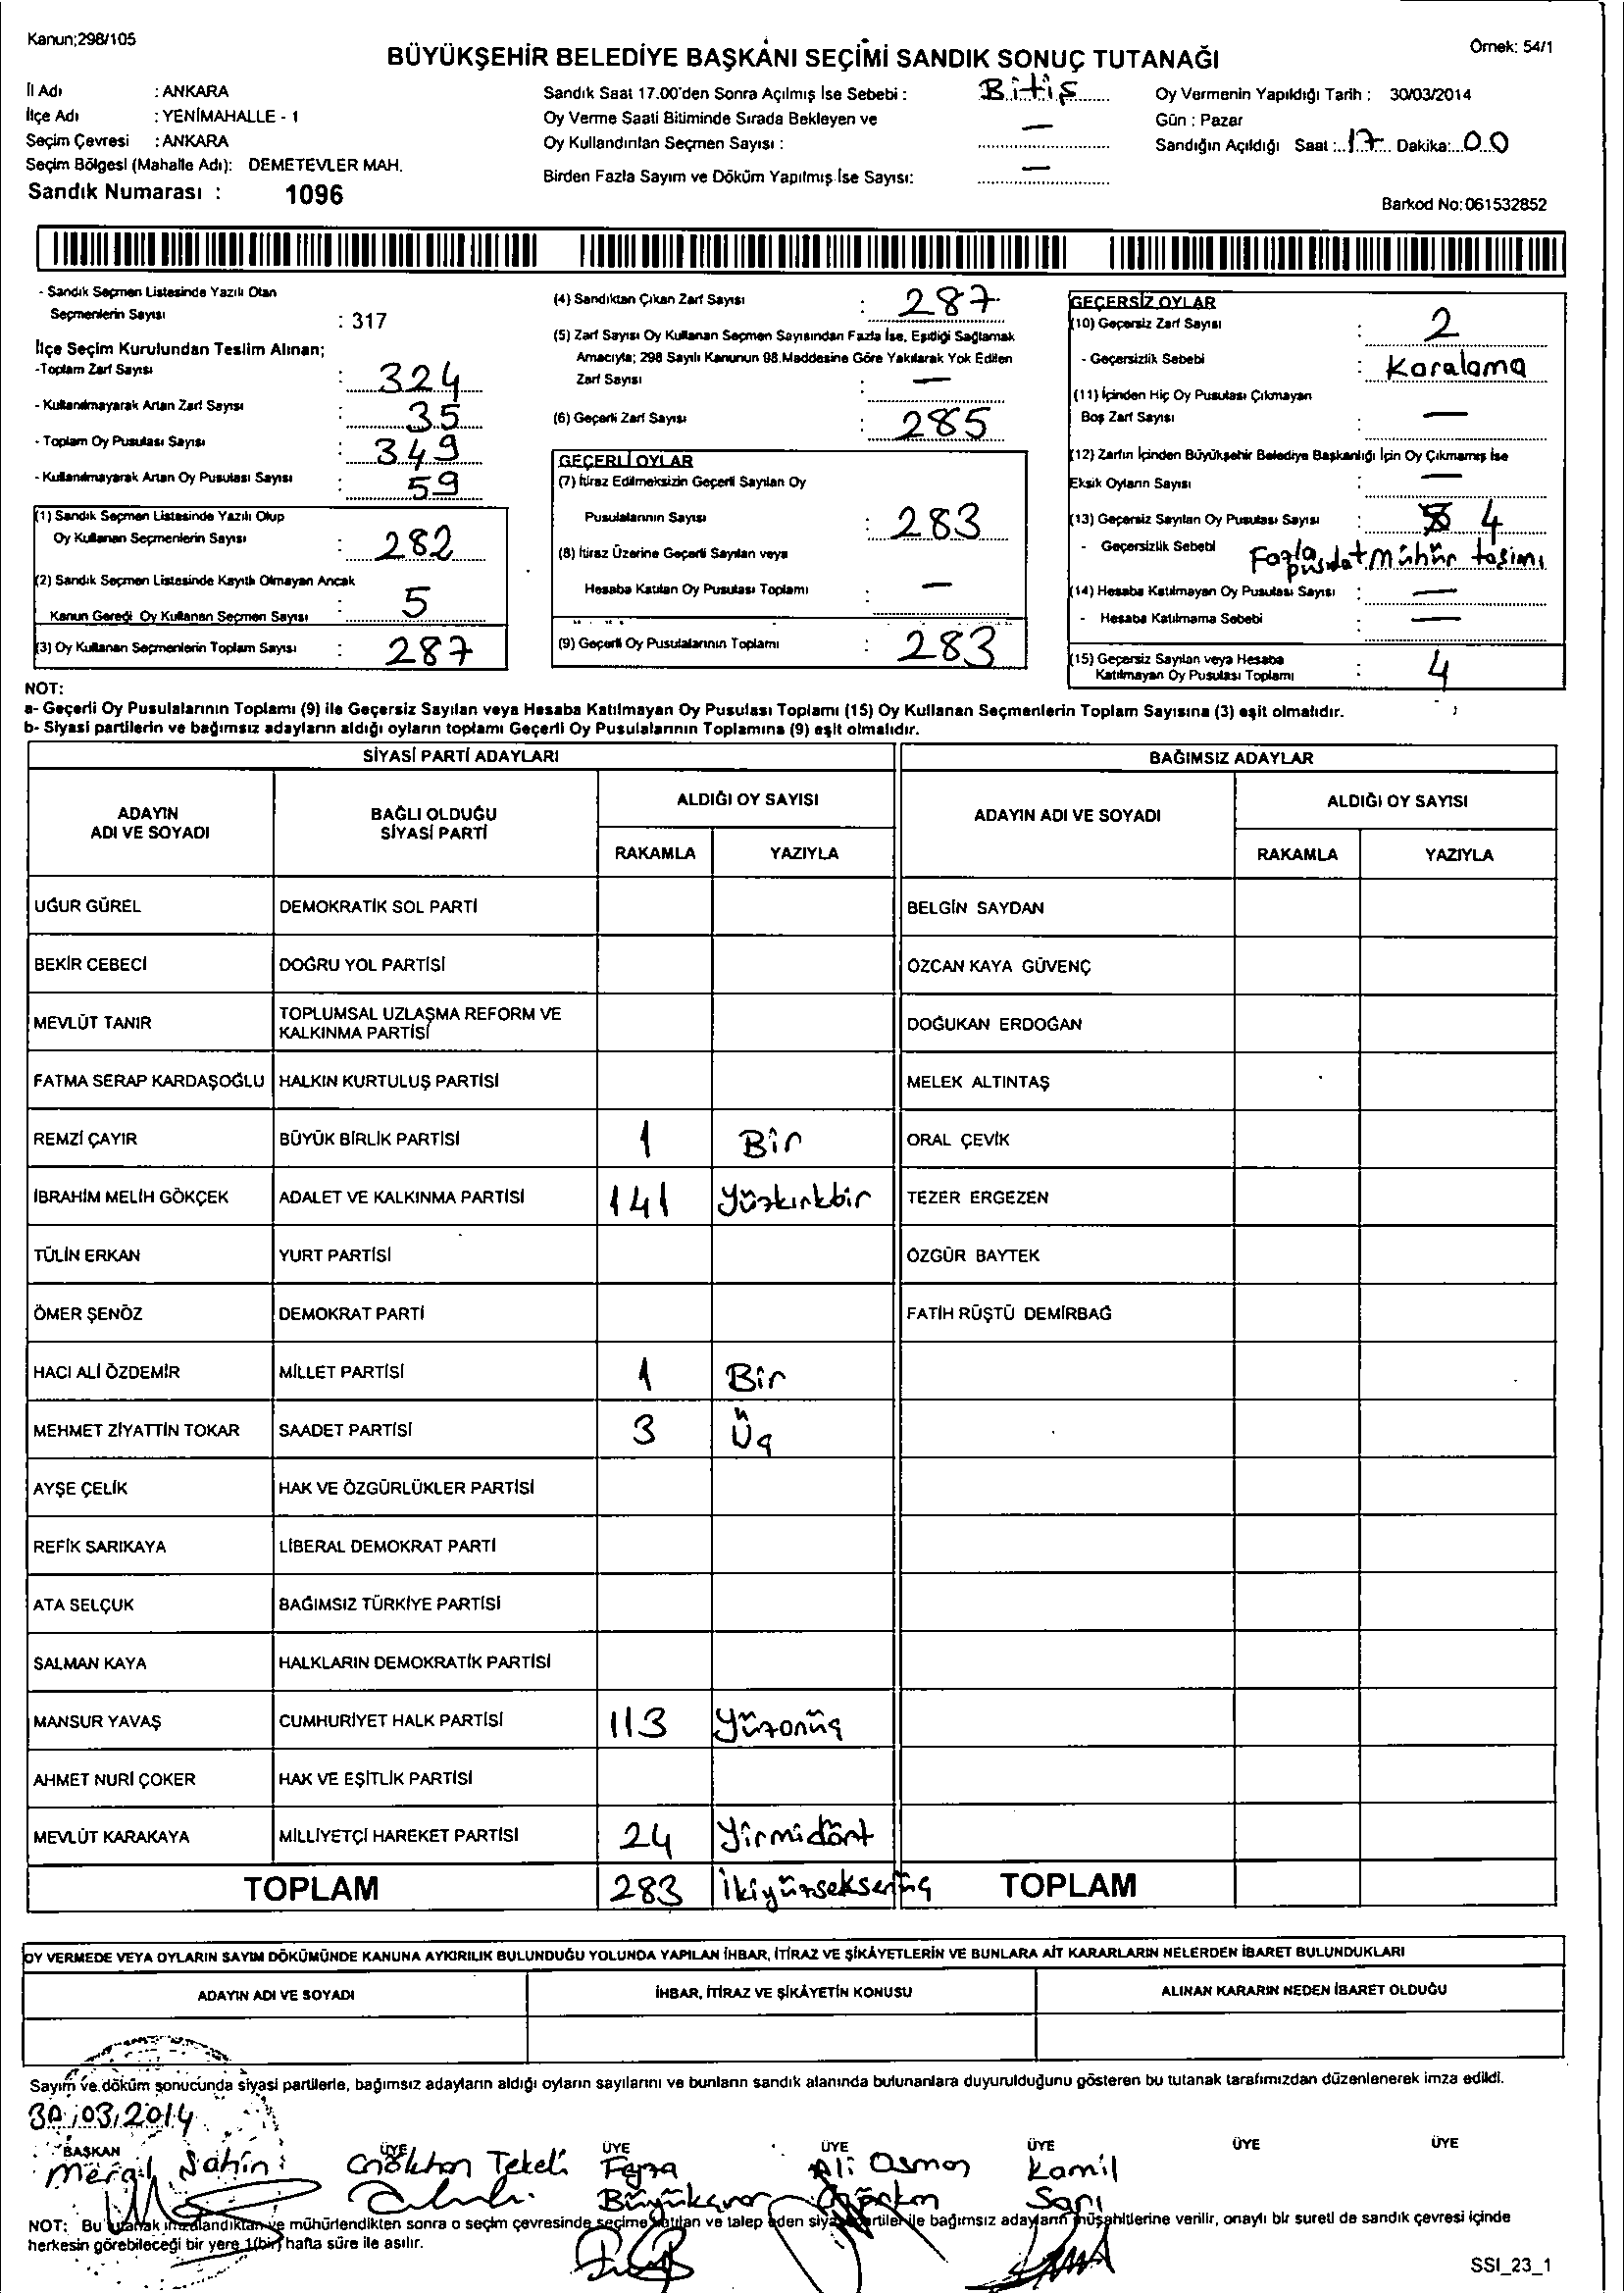 Kanun;298/105
Örnek: 54/1
BÜYÜKŞEHİR BELEDİYE BAŞKANI SEÇİMİ SANDIK SONUÇ TUTANAĞI
İl Adı : ANKARA
İlçe Adı : YENİMAHALLE - 1
Seçim Çevresi : ANKARA
Seçim Bölgesi (Mahalle Adı): DEMETEVLER MAH.
Sandık Numarası : 1096
Sandık Saat 17.00'den Sonra Açılmış İse Sebebi : Bitiş
Oy Verme Saati Bitiminde Sırada Bekleyen ve
Oy Kullandırılan Seçmen Sayısı : —
Birden Fazla Sayım ve Döküm Yapılmış İse Sayısı: —
Oy Vermenin Yapıldığı Tarih : 30/03/2014
Gün : Pazar
Sandığın Açıldığı Saat : 17 Dakika: 00
Barkod No:061532852
- Sandık Seçmen Listesinde Yazılı Olan
Seçmenlerin Sayısı : 317
İlçe Seçim Kurulundan Teslim Alınan;
-Toplam Zarf Sayısı : 324
- Kullanılmayarak Artan Zarf Sayısı : 35
- Toplam Oy Pusulası Sayısı : 349
- Kullanılmayarak Artan Oy Pusulası Sayısı : 59
(1) Sandık Seçmen Listesinde Yazılı Olup
Oy Kullanan Seçmenlerin Sayısı : 282
(2) Sandık Seçmen Listesinde Kayıtlı Olmayan Ancak
Kanun Gereği Oy Kullanan Seçmen Sayısı : 5
(3) Oy Kullanan Seçmenlerin Toplam Sayısı : 287
(4) Sandıktan Çıkan Zarf Sayısı : 287
(5) Zarf Sayısı Oy Kullanan Seçmen Sayısından Fazla İse, Eşitliği Sağlamak
Amacıyla; 298 Sayılı Kanunun 98.Maddesine Göre Yakılarak Yok Edilen
Zarf Sayısı : —
(6) Geçerli Zarf Sayısı : 285
GEÇERLİ OYLAR
(7) İtiraz Edilmeksizin Geçerli Sayılan Oy
Pusulalarının Sayısı : 283
(8) İtiraz Üzerine Geçerli Sayılan veya
Hesaba Katılan Oy Pusulası Toplamı : —
(9) Geçerli Oy Pusulalarının Toplamı : 283
GEÇERSİZ OYLAR
(10) Geçersiz Zarf Sayısı : 2
- Geçersizlik Sebebi : Karalama
(11) İçinden Hiç Oy Pusulası Çıkmayan
Boş Zarf Sayısı : —
(12) Zarfın İçinden Büyükşehir Belediye Başkanlığı İçin Oy Çıkmamış İse
Eksik Oyların Sayısı : —
(13) Geçersiz Sayılan Oy Pusulası Sayısı : 4
- Geçersizlik Sebebi Fazla + Mühür taşımı
(14) Hesaba Katılmayan Oy Pusulası Sayısı : —
- Hesaba Katılmama Sebebi : —
(15) Geçersiz Sayılan veya Hesaba
Katılmayan Oy Pusulası Toplamı : 4
NOT:
a- Geçerli Oy Pusulalarının Toplamı (9) ile Geçersiz Sayılan veya Hesaba Katılmayan Oy Pusulası Toplamı (15) Oy Kullanan Seçmenlerin Toplam Sayısına (3) eşit olmalıdır.
b- Siyasi partilerin ve bağımsız adayların aldığı oyların toplamı Geçerli Oy Pusulalarının Toplamına (9) eşit olmalıdır.
SİYASİ PARTİ ADAYLARI BAĞIMSIZ ADAYLAR
ADAYIN ADI VE SOYADI
BAĞLI OLDUĞU SİYASİ PARTİ
ALDIĞI OY SAYISI
RAKAMLA YAZIYLA
ADAYIN ADI VE SOYADI
ALDIĞI OY SAYISI
RAKAMLA YAZIYLA
UĞUR GÜREL DEMOKRATİK SOL PARTİ BELGİN SAYDAN
BEKİR CEBECİ DOĞRU YOL PARTİSİ ÖZCAN KAYA GÜVENÇ
MEVLÜT TANIR TOPLUMSAL UZLAŞMA REFORM VE KALKINMA PARTİSİ DOĞUKAN ERDOĞAN
FATMA SERAP KARDAŞOĞLU HALKIN KURTULUŞ PARTİSİ MELEK ALTINTAŞ
REMZİ ÇAYIR BÜYÜK BİRLİK PARTİSİ 1 Bir ORAL ÇEVİK
İBRAHİM MELİH GÖKÇEK ADALET VE KALKINMA PARTİSİ 141 Yüzkırkbir TEZER ERGEZEN
TÜLİN ERKAN YURT PARTİSİ ÖZGÜR BAYTEK
ÖMER ŞENÖZ DEMOKRAT PARTİ FATİH RÜŞTÜ DEMİRBAĞ
HACI ALİ ÖZDEMİR MİLLET PARTİSİ 1 Bir
MEHMET ZİYATTİN TOKAR SAADET PARTİSİ 3 Üç
AYŞE ÇELİK HAK VE ÖZGÜRLÜKLER PARTİSİ
REFİK SARIKAYA LİBERAL DEMOKRAT PARTİ
ATA SELÇUK BAĞIMSIZ TÜRKİYE PARTİSİ
SALMAN KAYA HALKLARIN DEMOKRATİK PARTİSİ
MANSUR YAVAŞ CUMHURİYET HALK PARTİSİ 113 Yüzonüç
AHMET NURİ ÇOKER HAK VE EŞİTLİK PARTİSİ
MEVLÜT KARAKAYA MİLLİYETÇİ HAREKET PARTİSİ 24 Yirmidört
TOPLAM 283 İkiyüzseksenüç TOPLAM
OY VERMEDE VEYA OYLARIN SAYIM DÖKÜMÜNDE KANUNA AYKIRILIK BULUNDUĞU YOLUNDA YAPILAN İHBAR, İTİRAZ VE ŞİKÂYETLERİN VE BUNLARA AİT KARARLARIN NELERDEN İBARET BULUNDUKLARI
ADAYIN ADI VE SOYADI İHBAR, İTİRAZ VE ŞİKÂYETİN KONUSU ALINAN KARARIN NEDEN İBARET OLDUĞU
Sayım ve döküm sonucunda siyasi partilerle, bağımsız adayların aldığı oyların sayılarını ve bunların sandık alanında bulunanlara duyurulduğunu gösteren bu tutanak tarafımızdan düzenlenerek imza edildi.
30/03/2014
BAŞKAN ÜYE ÜYE ÜYE ÜYE ÜYE ÜYE
Meral Şahin Gökhan Tekeli Feyza Ali Osman Kamil
Sarı
NOT: Bu tutanak imzalandıktan ve mühürlendikten sonra o seçim çevresinde seçime katılan ve talep eden siyasi partiler ile bağımsız adayların müşahitlerine verilir, onaylı bir sureti de sandık çevresi içinde
herkesin görebileceği bir yere 1(bir) hafta süre ile asılır.
SSI_23_1